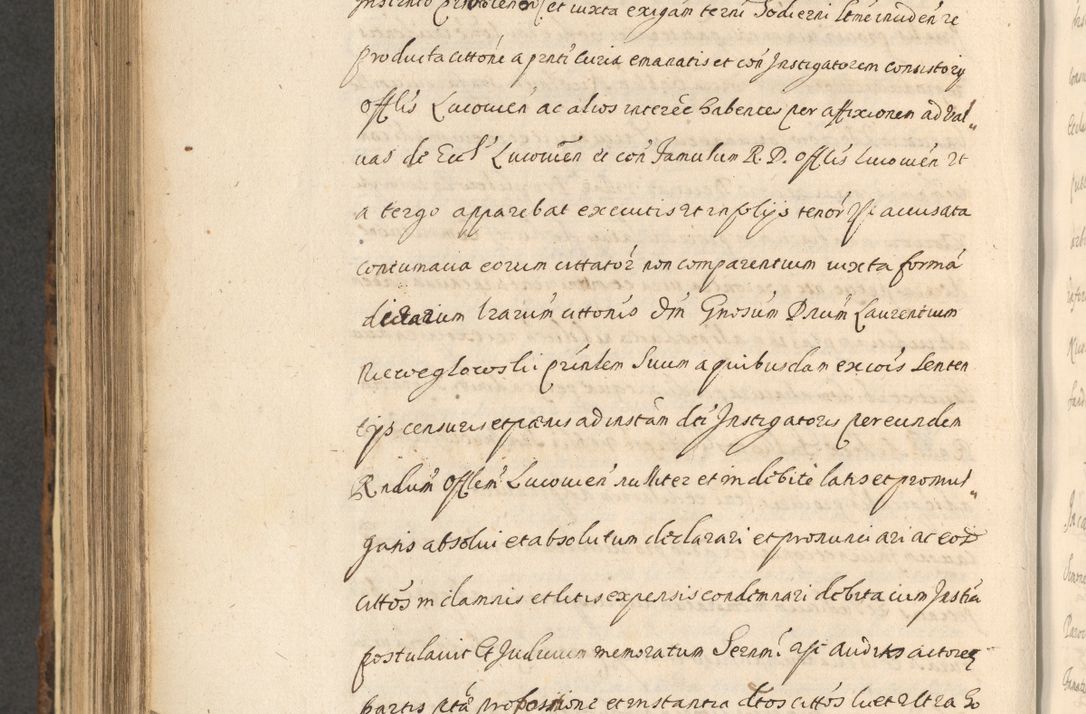 et iuxta exigam terni hodierni
producta cittone a pnti Curia emanatis et con Instigatorem Consistorij
Offlis Lucouien ac alios interee habences per affixionem ad val„
uas de Eccl Lucouien et con Famulum R. D. Offlis Lucouien et
a tergo apparebat executis et in folijs tenor Ipse accusata
contumacia eorum cittator non comparentium iuxta forma
dictarum lrarum cittonis Dm Gnosum Drum Laurentium
Niewęglowski prinlem Suum a quibusdam excois Senten
tijs censuris et pænis ad instam dti Instigatoris per eundem
Rndum Offlem Lucouien nulliter et indebite latis et promul„
gatis absolui et absolutum declarari et pronunciari ac eos
cittos in damnis et litis expensis condemnari debita cum Instia
postulauit Et Iudicium memoratum Serenmi Ipse audito actorea
partis pta professione et instantia dtos cittos